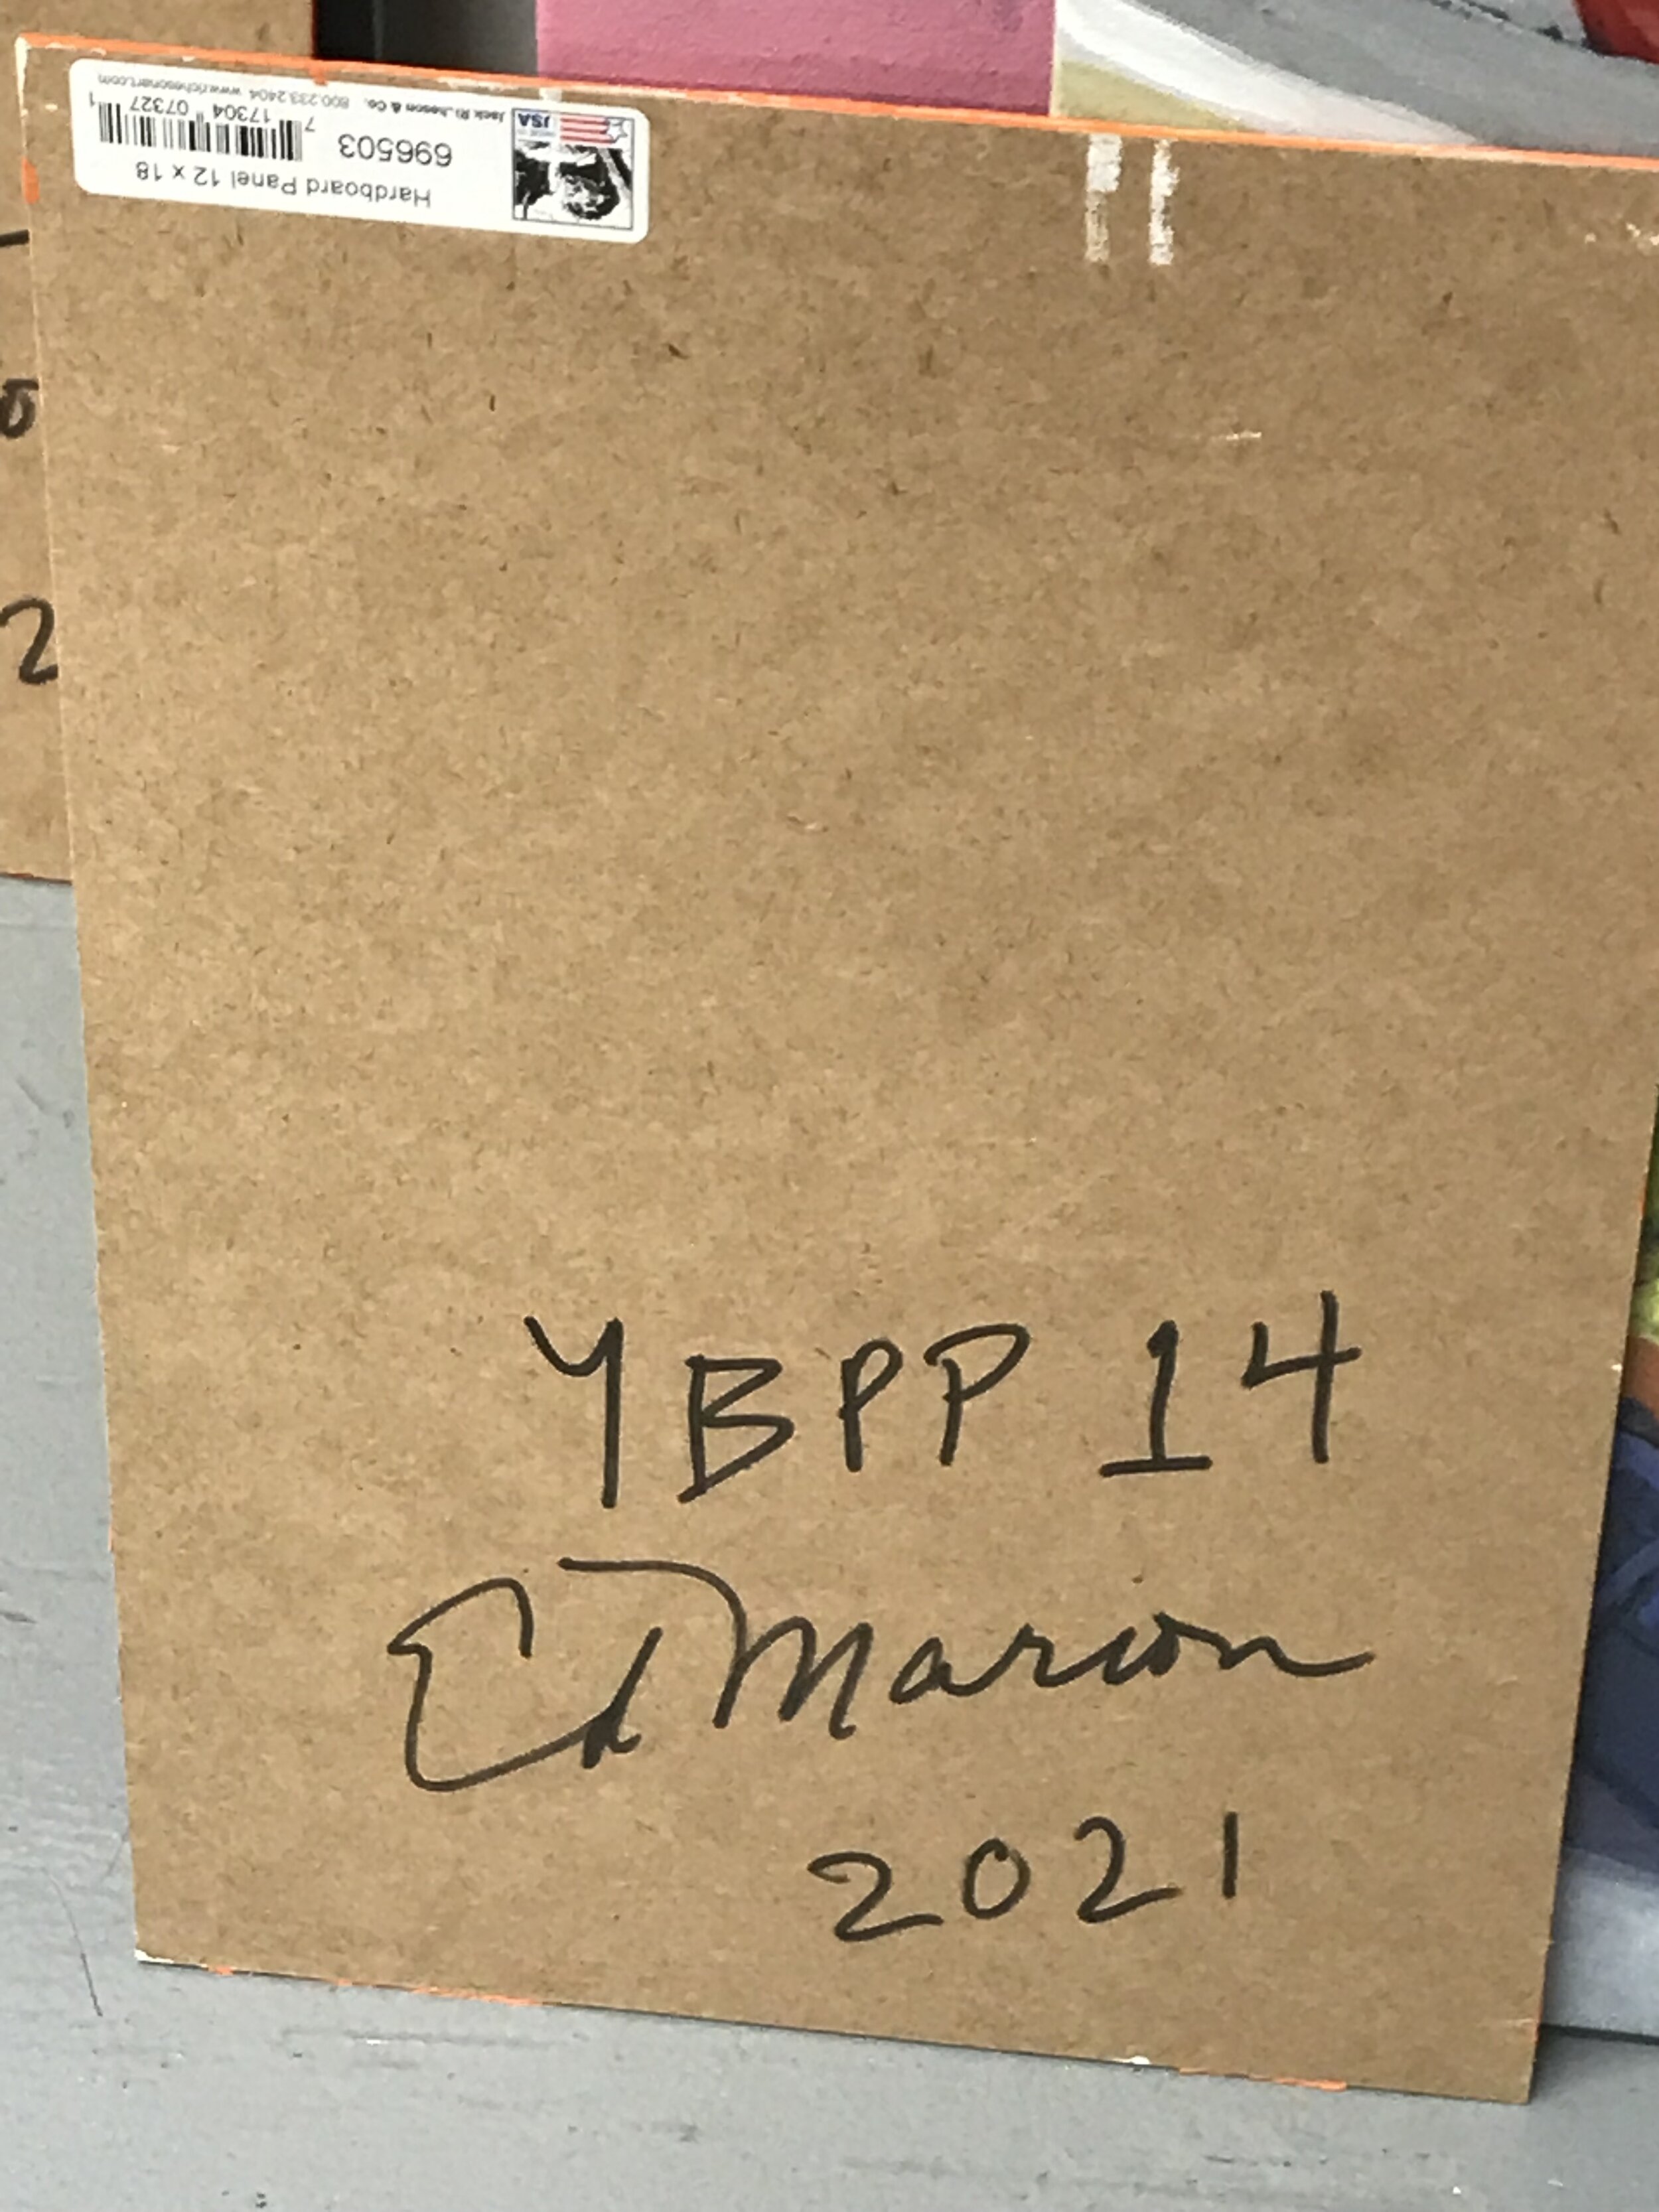 Hardboard Panel 12 x 18
696503
7 17304 07327 1
Jack Richeson & Co. 800.233.2404 www.richesonart.com
USA
2
YBPP 14
Ed Marion
2021